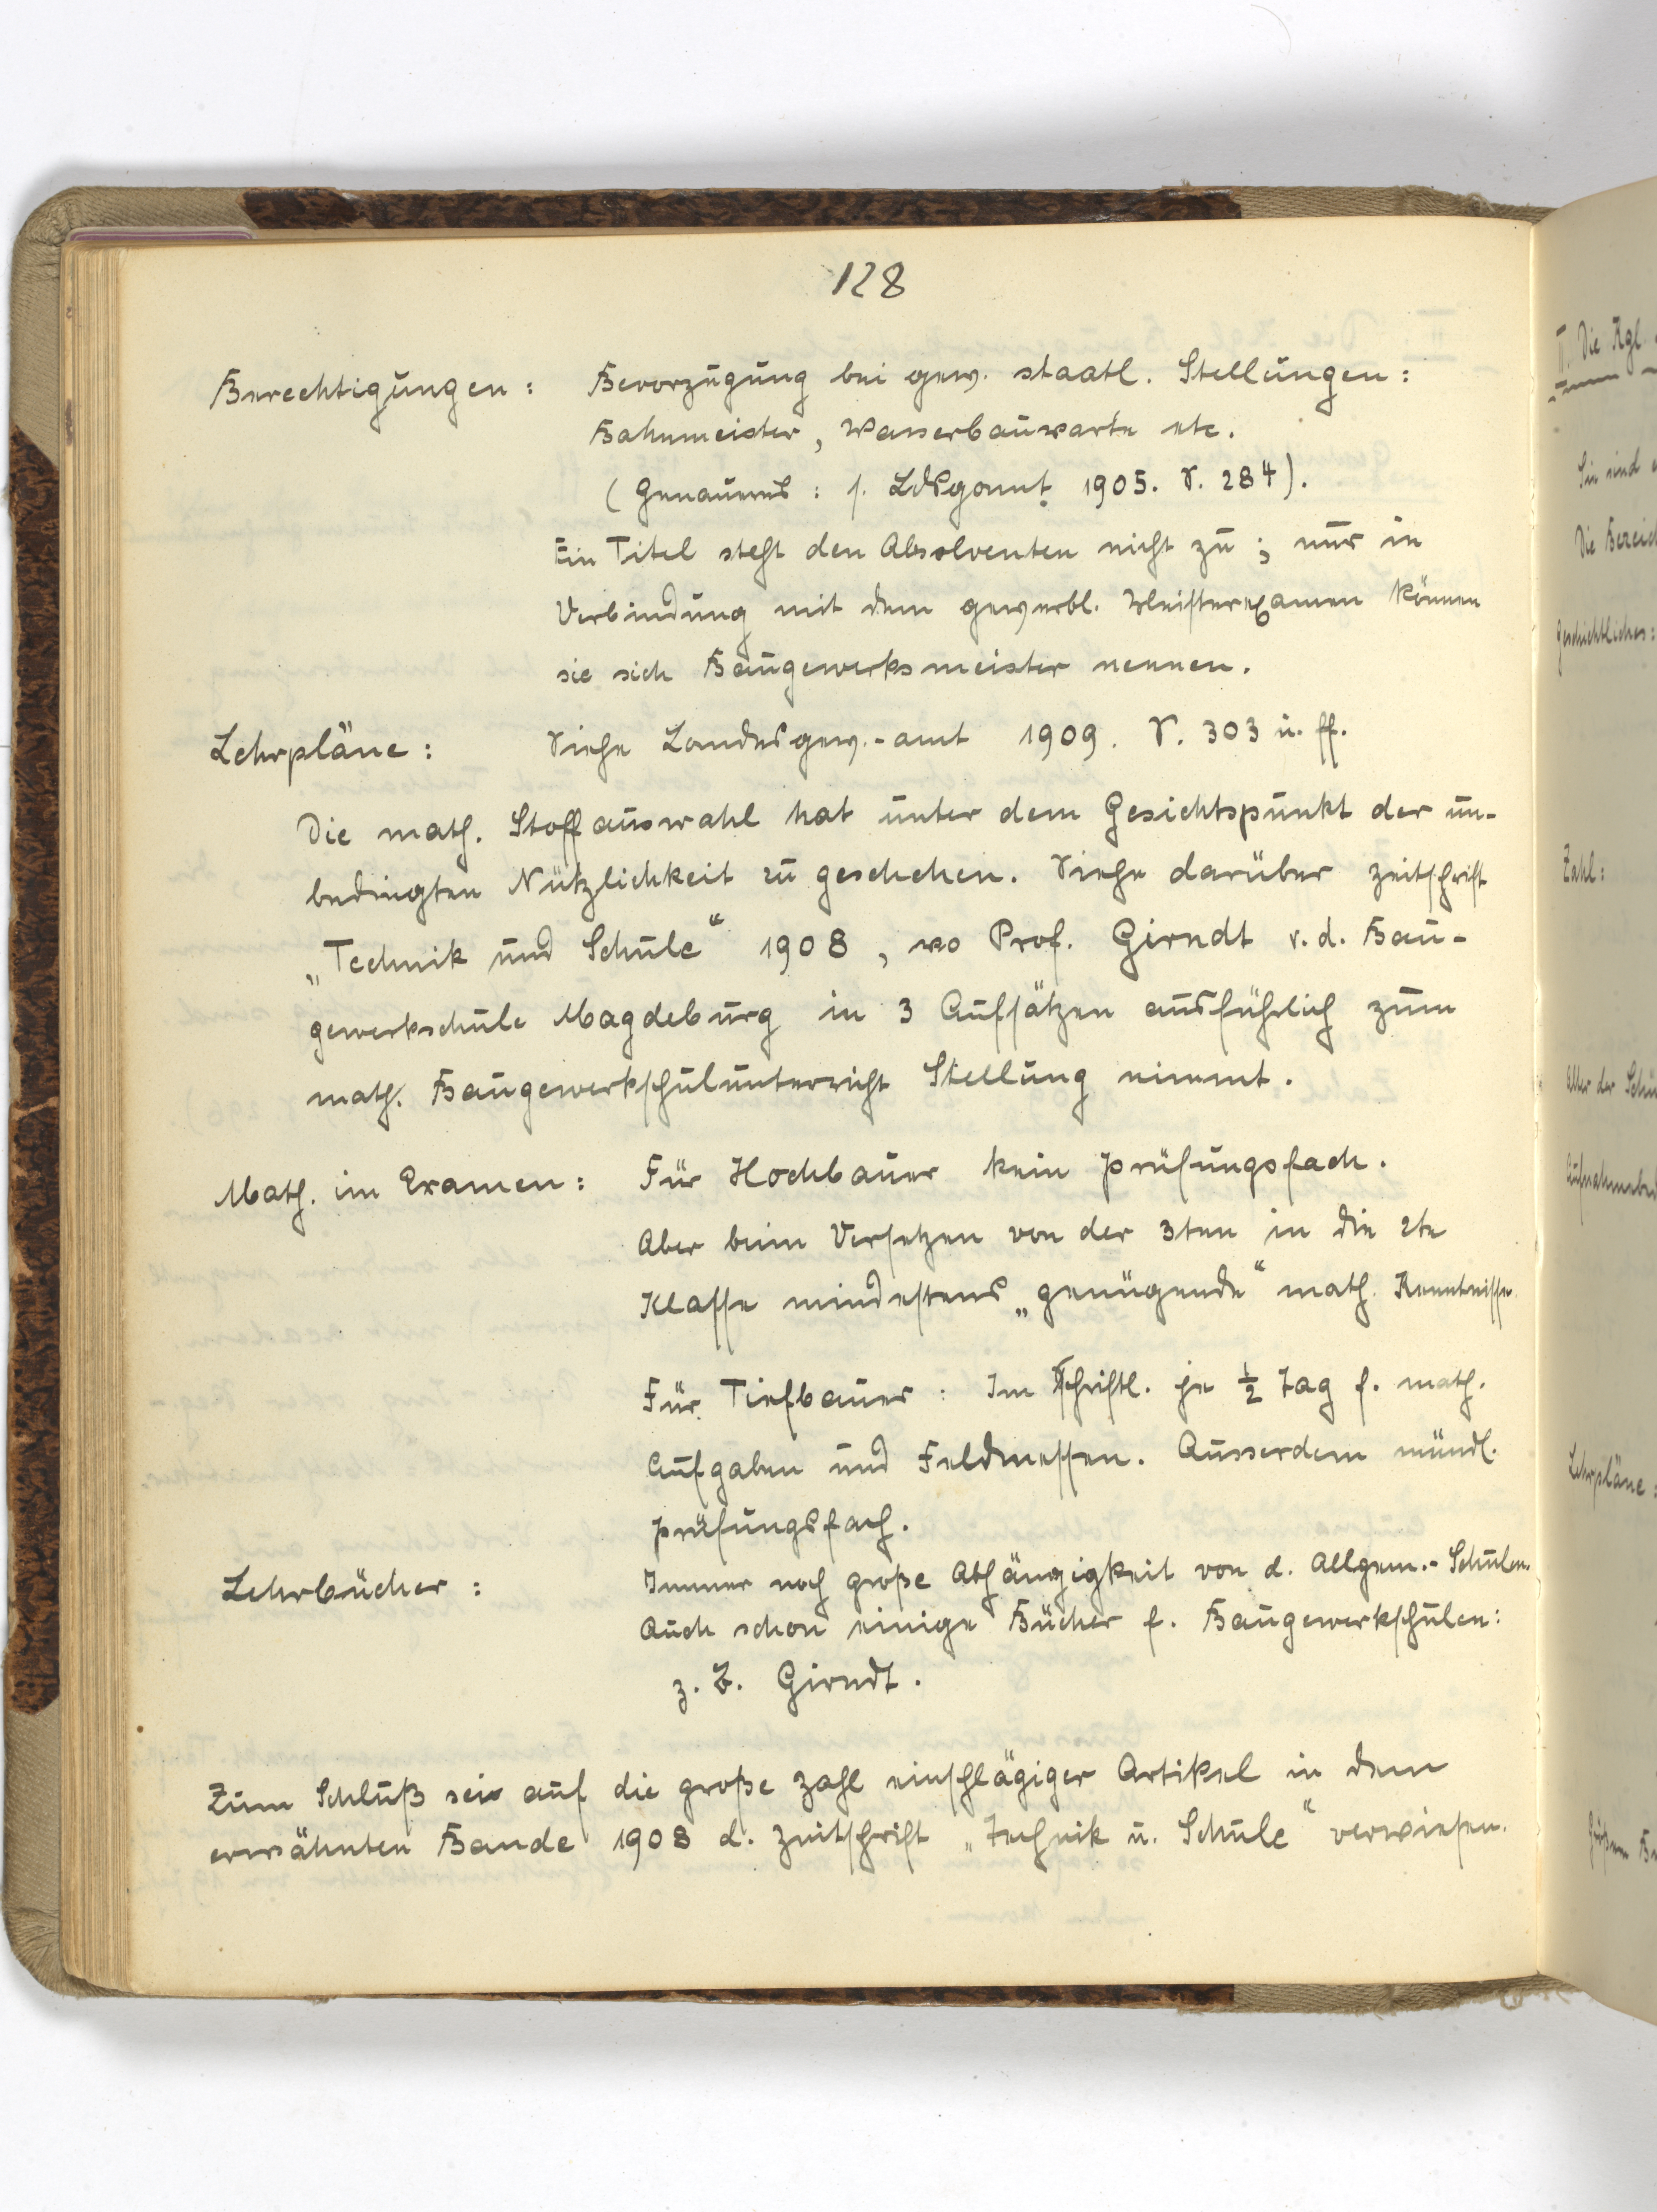 128
Berechtigungen: Bevorzugung bei gew. staatl. Stellungen:
Bahnmeister, Wasserbauwarte etc.
(Genaueres: s. Ldsgewamt 1905. S. 284).
Ein Titel steht den Absolventen nicht zu; nur in
Verbindung mit dem gewerbl. Meisterexamen können
sie sich Baugewerksmeister nennen.
Lehrpläne: Siehe Landesgew.-amt 1909. S. 303 u. ff.
Die math. Stoffauswahl hat unter dem Gesichtspunkt der un-
bedingten Nützlichkeit zu geschehen. Siehe darüber Zeitschrift
„Technik und Schule“ 1908, wo Prof. Girndt v. d. Bau-
gewerkschule Magdeburg in 3 Aufsätzen ausführlich zum
math. Baugewerkschulunterricht Stellung nimmt.
Math. im Examen: Für Hochbauer kein Prüfungsfach.
Aber beim Versetzen von der 3ten in die 2te
Klasse mindestens „genügende“ math. Kenntnisse.
Für Tiefbauer: Im schriftl. je ½ Tag f. math.
Aufgaben und Feldmessen. Ausserdem mündl.
Prüfungsfach.
Lehrbücher: Immer noch große Abhängigkeit von d. Allgem.-Schulen.
Auch schon einige Bücher f. Baugewerkschulen:
z. B. Girndt.
Zum Schluß sei auf die große Zahl einschlägiger Artikel in dem
erwähnten Bande 1908 d. Zeitschrift „Technik u. Schule“ verwiesen.
II. Die Kgl.
Sie sind
Die Bezeich
Geschichtliches:
Zahl:
Alter der Schü
Aufnahmebed
Lehrpläne: